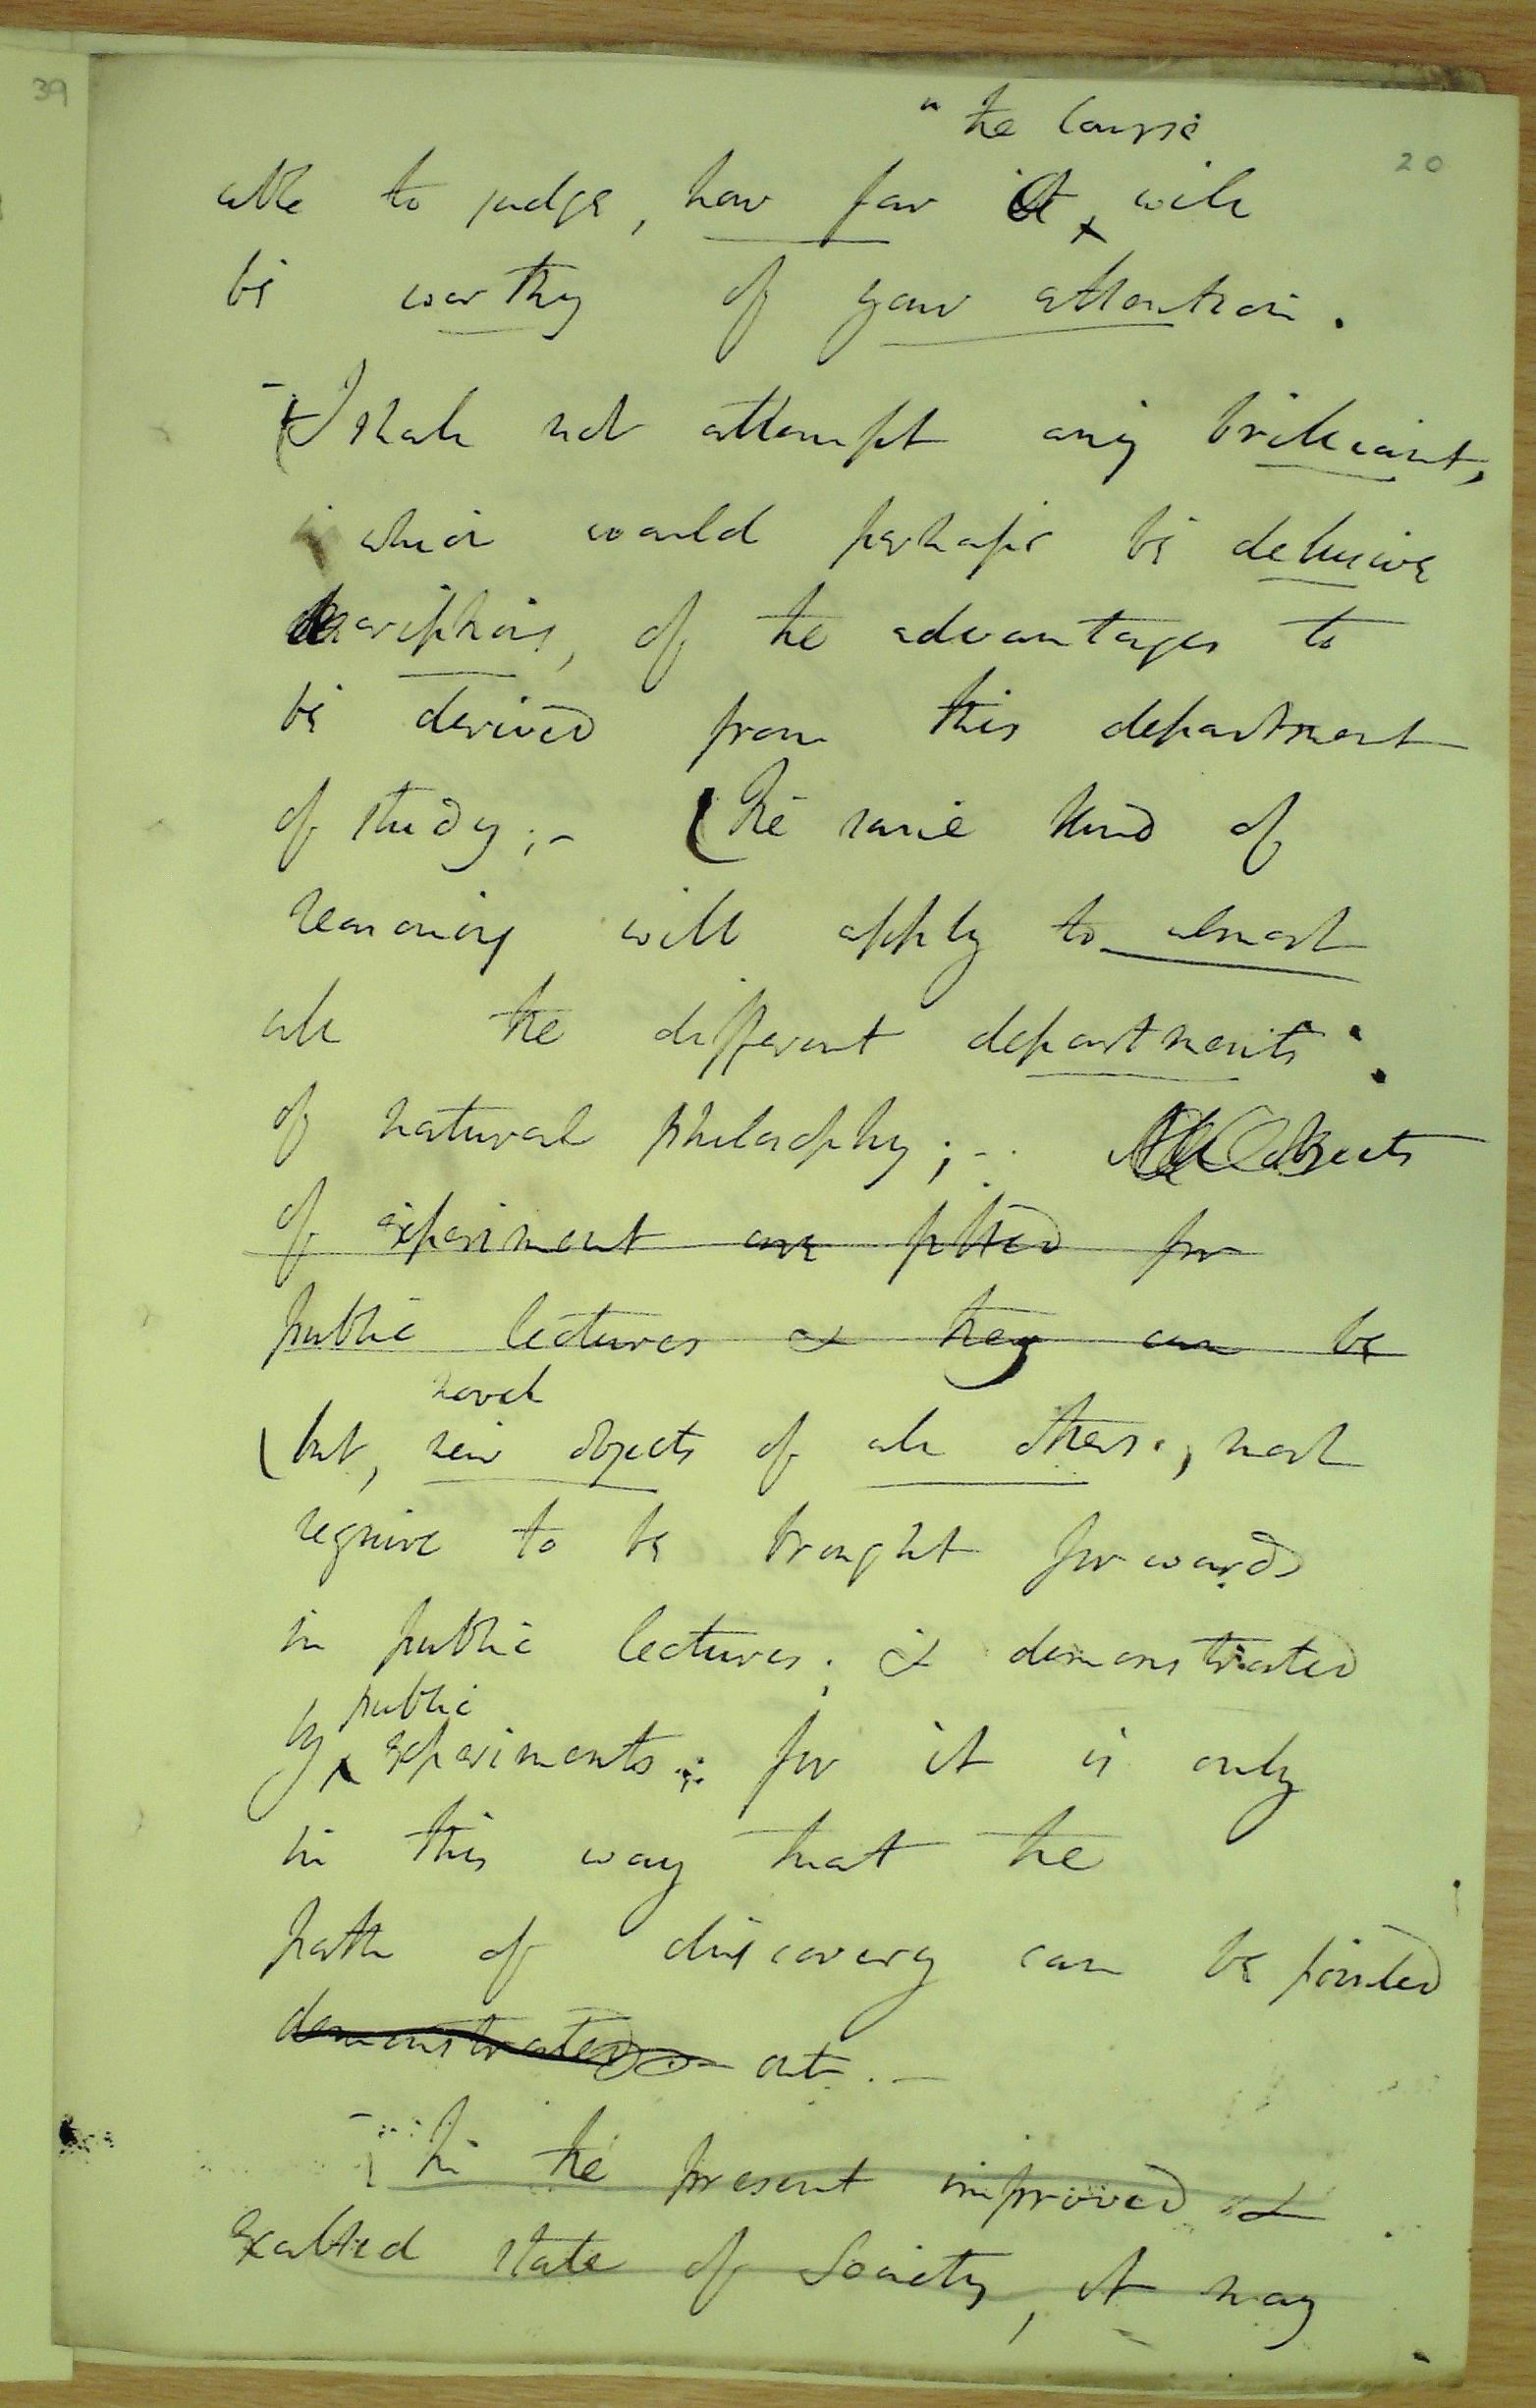 39
20
" the Course
able to judge, how far it will
be worthy of your attention.
I shall not attempt any brilliant,
which would perhaps be delusive
descriptions, of the advantages to
be derived from this department
of study;- The same kind of
reasoning will apply to almost
all the different departments
of natural philosophy;- All Objects
of experiment are fitted for
public lectures & they can be
novel
but, new objects of all others, most
require to be brought forwards
in public lectures; & demonstrated
public
by experiments: for it is only
in this way that the
path of discovery can be pointed
demonstrated out.-
In the present improved &
exalted state of Society, it may